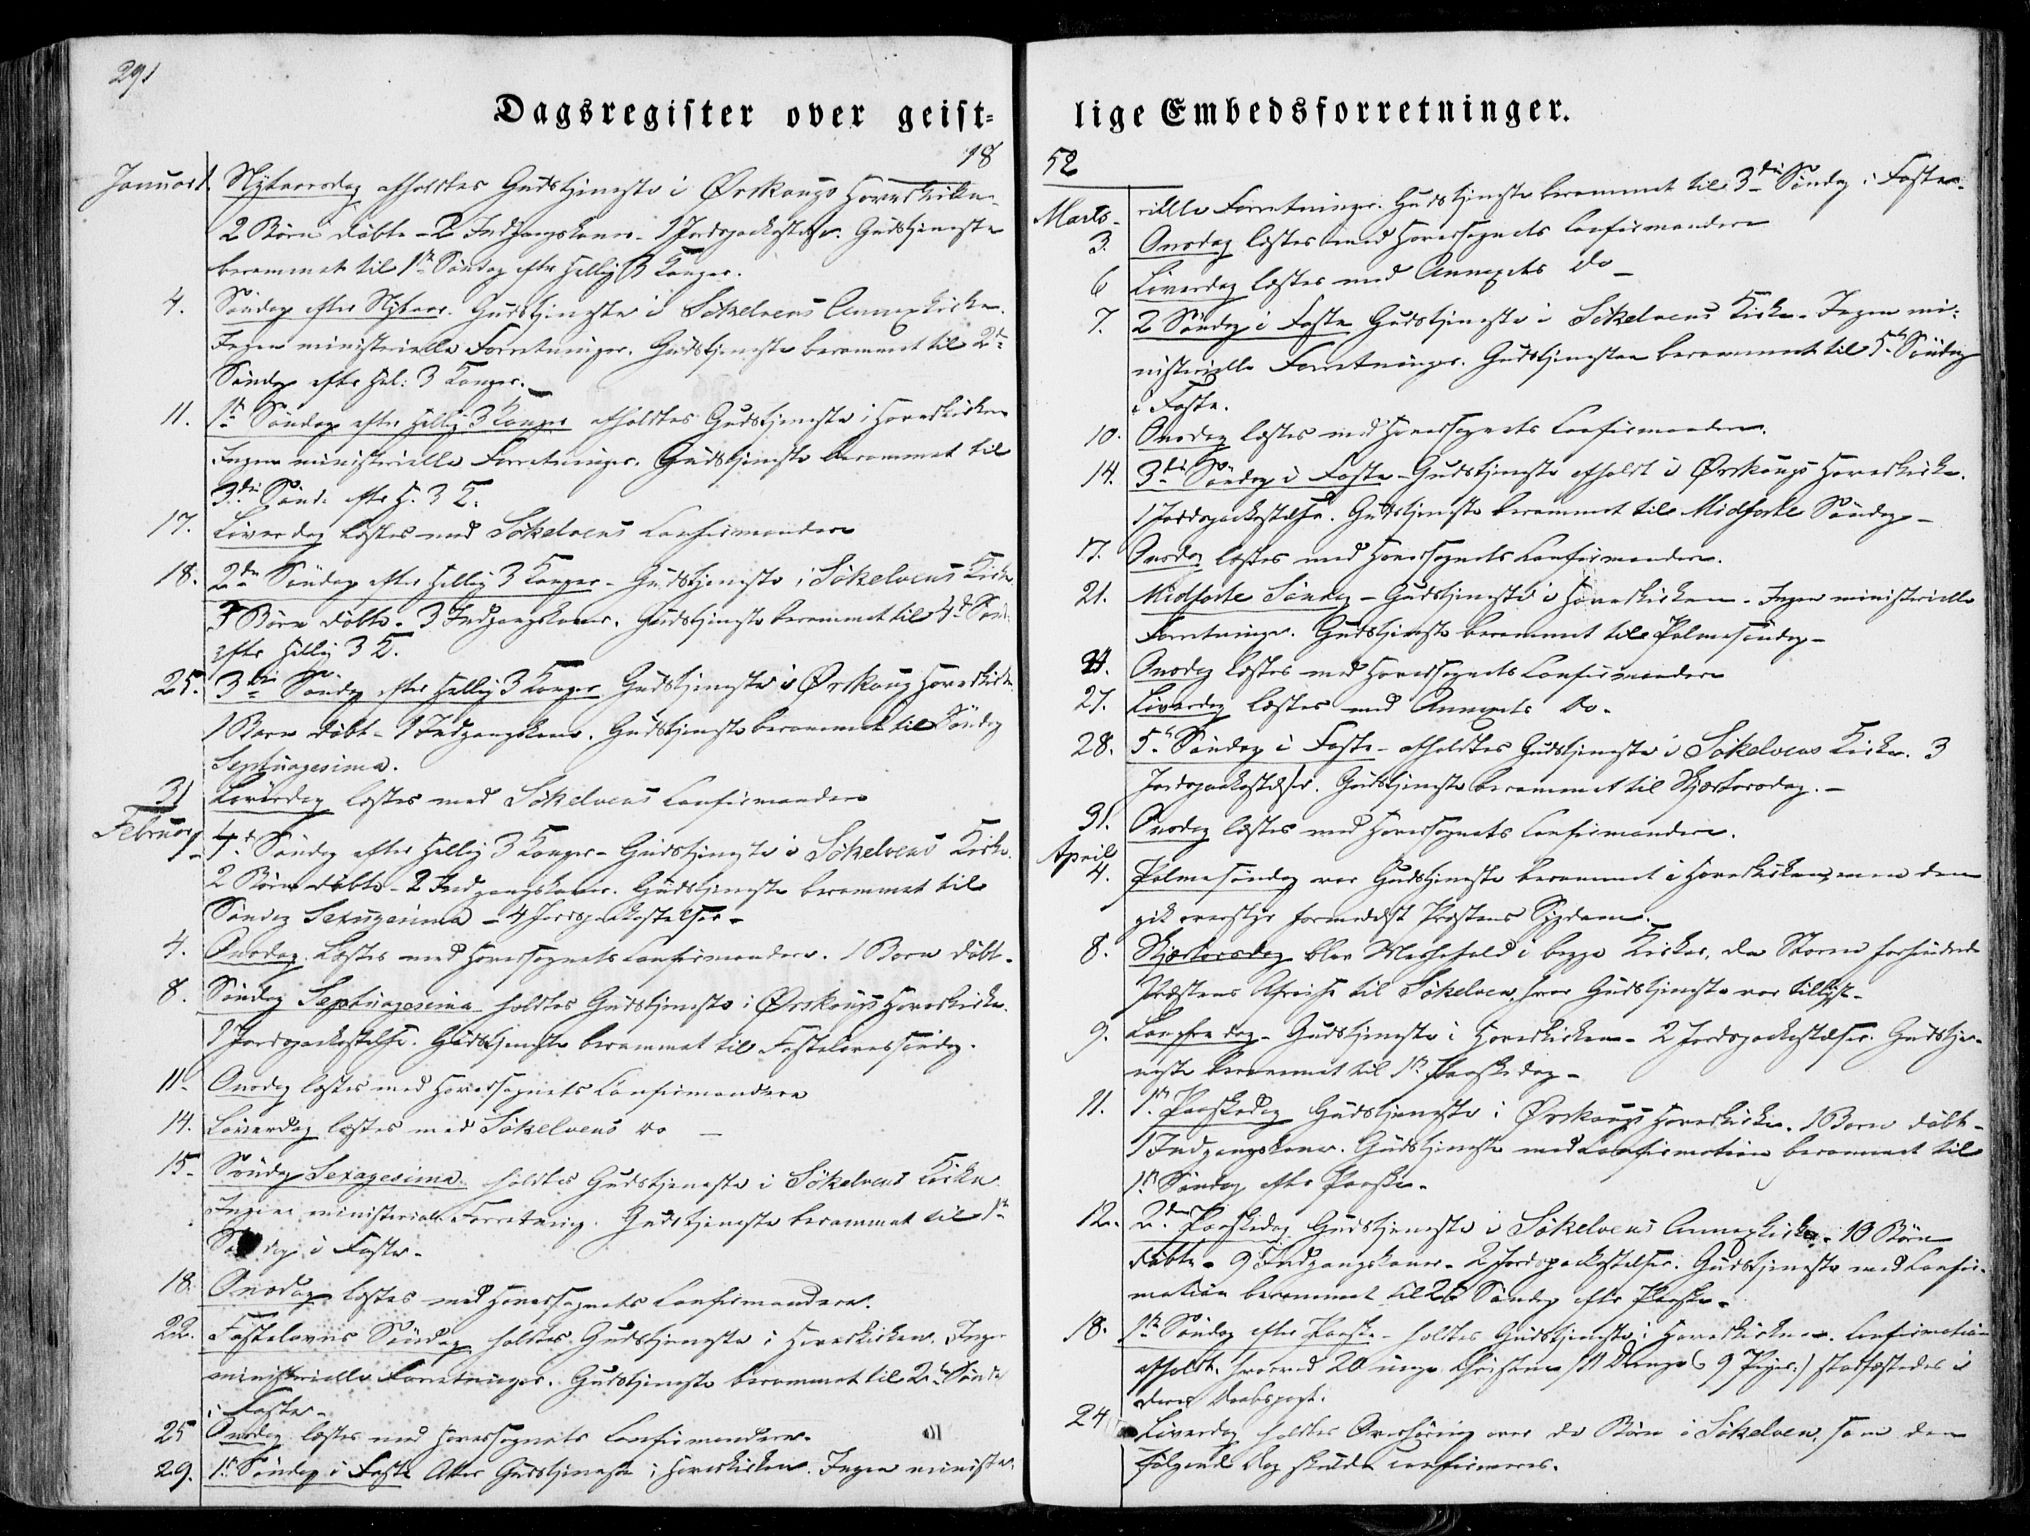 291
Dagsregister over geist-
18
Januar 1. Nytaarsdag afholdtes Gudstjeneste i Ørskougs Hovedkirke.
2 Børn døbte - 2 Indgangskoner - 1 Jordspaakastelse. Gudstjeneste
berammet til 1ste Søndag efter Hellig 3 Konger.
4. Søndag efter Nytaar. Gudstjeneste i Søkelvens Annexkirke.
Ingen ministerielle Forretninger. Gudstjeneste berammet til 2den
Søndag efter Hel: 3 Konger.
11. 1ste Søndag efter Hellig 3 Konger afholdtes Gudstjeneste i Hovedkirken
Ingen ministerielle Forretninger. Gudstjeneste berammet til
3die Sønd. efter H. 3 K.
17. Løverdag læstes med Søkelvens Confirmander
18. 2den Søndag efter Hellig 3 Konger - Gudstjeneste i Søkelvens Kirke.
3 Børn døbte. 3 Indgangskoner. Gudstjeneste berammet til 4de Sønd.
efter Hellig 3 K.
25. 3die Søndag efter Hellig 3 Konger Gudstjeneste i Ørskoug Hovedkirke.
1 Barn døbt - 1 Indgangskone. Gudstjeneste berammet til Søndag
Septuagesima.
31 Løverdag læstes med Søkelvens Confirmander
Februar 1. 4de Søndag efter Hellig 3 Konger - Gudstjeneste i Søkelvens Kirke.
2 Børn døbte - 2 Indgangskoner. Gudstjeneste berammet til
Søndag Sexagesima - 4 Jordspaakastelser -
4. Onsdag. Læstes med Hovedsognets Confirmander. 1 Barn døbt.
8. Søndag Septuagesima holdtes Gudstjeneste i Ørskougs Hovedkirke.
1 Jordspaakastelse. Gudstjeneste berammet til Fastelavnssøndag.
11. Onsdag læstes med Hovedsognets Confirmander
14. Løverdag læstes med Søkelvens do -
15. Søndag Sexagesima holdtes Gudstjeneste i Søkelvens Kirke
Ingen ministeriel Forretning. Gudstjeneste berammet til 1ste
Søndag i Faste.
18. Onsdag læstes med Hovedsognets Confirmander.
22. Fastelavns Søndag holdtes Gudstjeneste i Hovedkirken. Ingen
ministerielle Forretninger. Gudstjeneste berammet til 2den Søndag
i Faste.
25 Onsdag læstes med Hovedsognets Confirmander.
29. 1ste Søndag i Faste Gudstjeneste i Hovedkirken. Ingen ministe-
lige Embedsforretninger.
52
rielle Forretninger. Gudstjeneste berammet til 3die Søndag i Faste.
Marts 3. Onsdag læstes med Hovedsognets Confirmander
6 Løverdag læstes med Annexets do -
7. 2 Søndag i Faste Gudstjeneste i Søkelvens Kirke. Ingen mi-
nisterielle Forretninger. Gudstjenesten berammet til 5te Søndag
i Faste.
10. Onsdag læstes med Hovedsognets Confirmander.
14. 3die Søndag i Faste - Gudstjeneste afholdt i Ørskougs Hovedkirke.
1 Jordspaakastelse. Gudstjeneste berammet til Midfaste Søndag -
17. Onsdag læstes med Hovedsognets Confirmander.
21. Midfaste Søndag - Gudstjeneste i Hovedkirken. Ingen ministerielle
Forretninger. Gudstjeneste berammet til Palmesøndag -
24. Onsdag læstes med Hovedsognets Confirmander
27. Løverdag læstes med Annexets do.
28. 5te Søndag i Faste - afholdtes Gudstjeneste i Søkelvens Kirke. 3
Jordspaakastelser. Gudstjeneste berammet til Skjærtorsdag. -
31. Onsdag læstes med Hovedsognets Confirmander.
April 4. Palmesøndag var Gudstjeneste berammet i Hovedkirken, men den
gik overstyr formedelst Præstens Sygdom.
8. Skjærtorsdag blev Messefald i begge Kirker, da Storm forhindrede
Præstens Afreise til Søkelven, hvor Gudstjeneste var tillyst.
9. Langfredag - Gudstjeneste i Hovedkirken - 2 Jordspaakastelser. Gudstje-
neste berammet til 1ste Paaskedag -
11. 1ste Paaskedag Gudstjeneste i Ørskougs Hovedkirke. 1 Barn døbt -
1 Indgangskone. Gudstjeneste med Confirmation berammet til
1ste Søndag efter Paaske.
12. 2den Paaskedag Gudstjeneste i Søkelvens Annexkirke - 10 Børn
døbte - 9 Indgangskoner - 2 Jordspaakastelser. Gudstjeneste med Confir-
mation berammet til 2den Søndag efter Paaske.
18. 1ste Søndag efter Paaske - holdtes Gudstjeneste i Hovedkirken. Confirmation
afholdt. hvorved 20 unge Christne (11 Drenge & 9 Piger) stadfæstedes i
deres Daabspagt.
24 Løverdag holdtes Overhøring over de Børn i Søkelven, som den
følgende Dag skulde confirmeres.